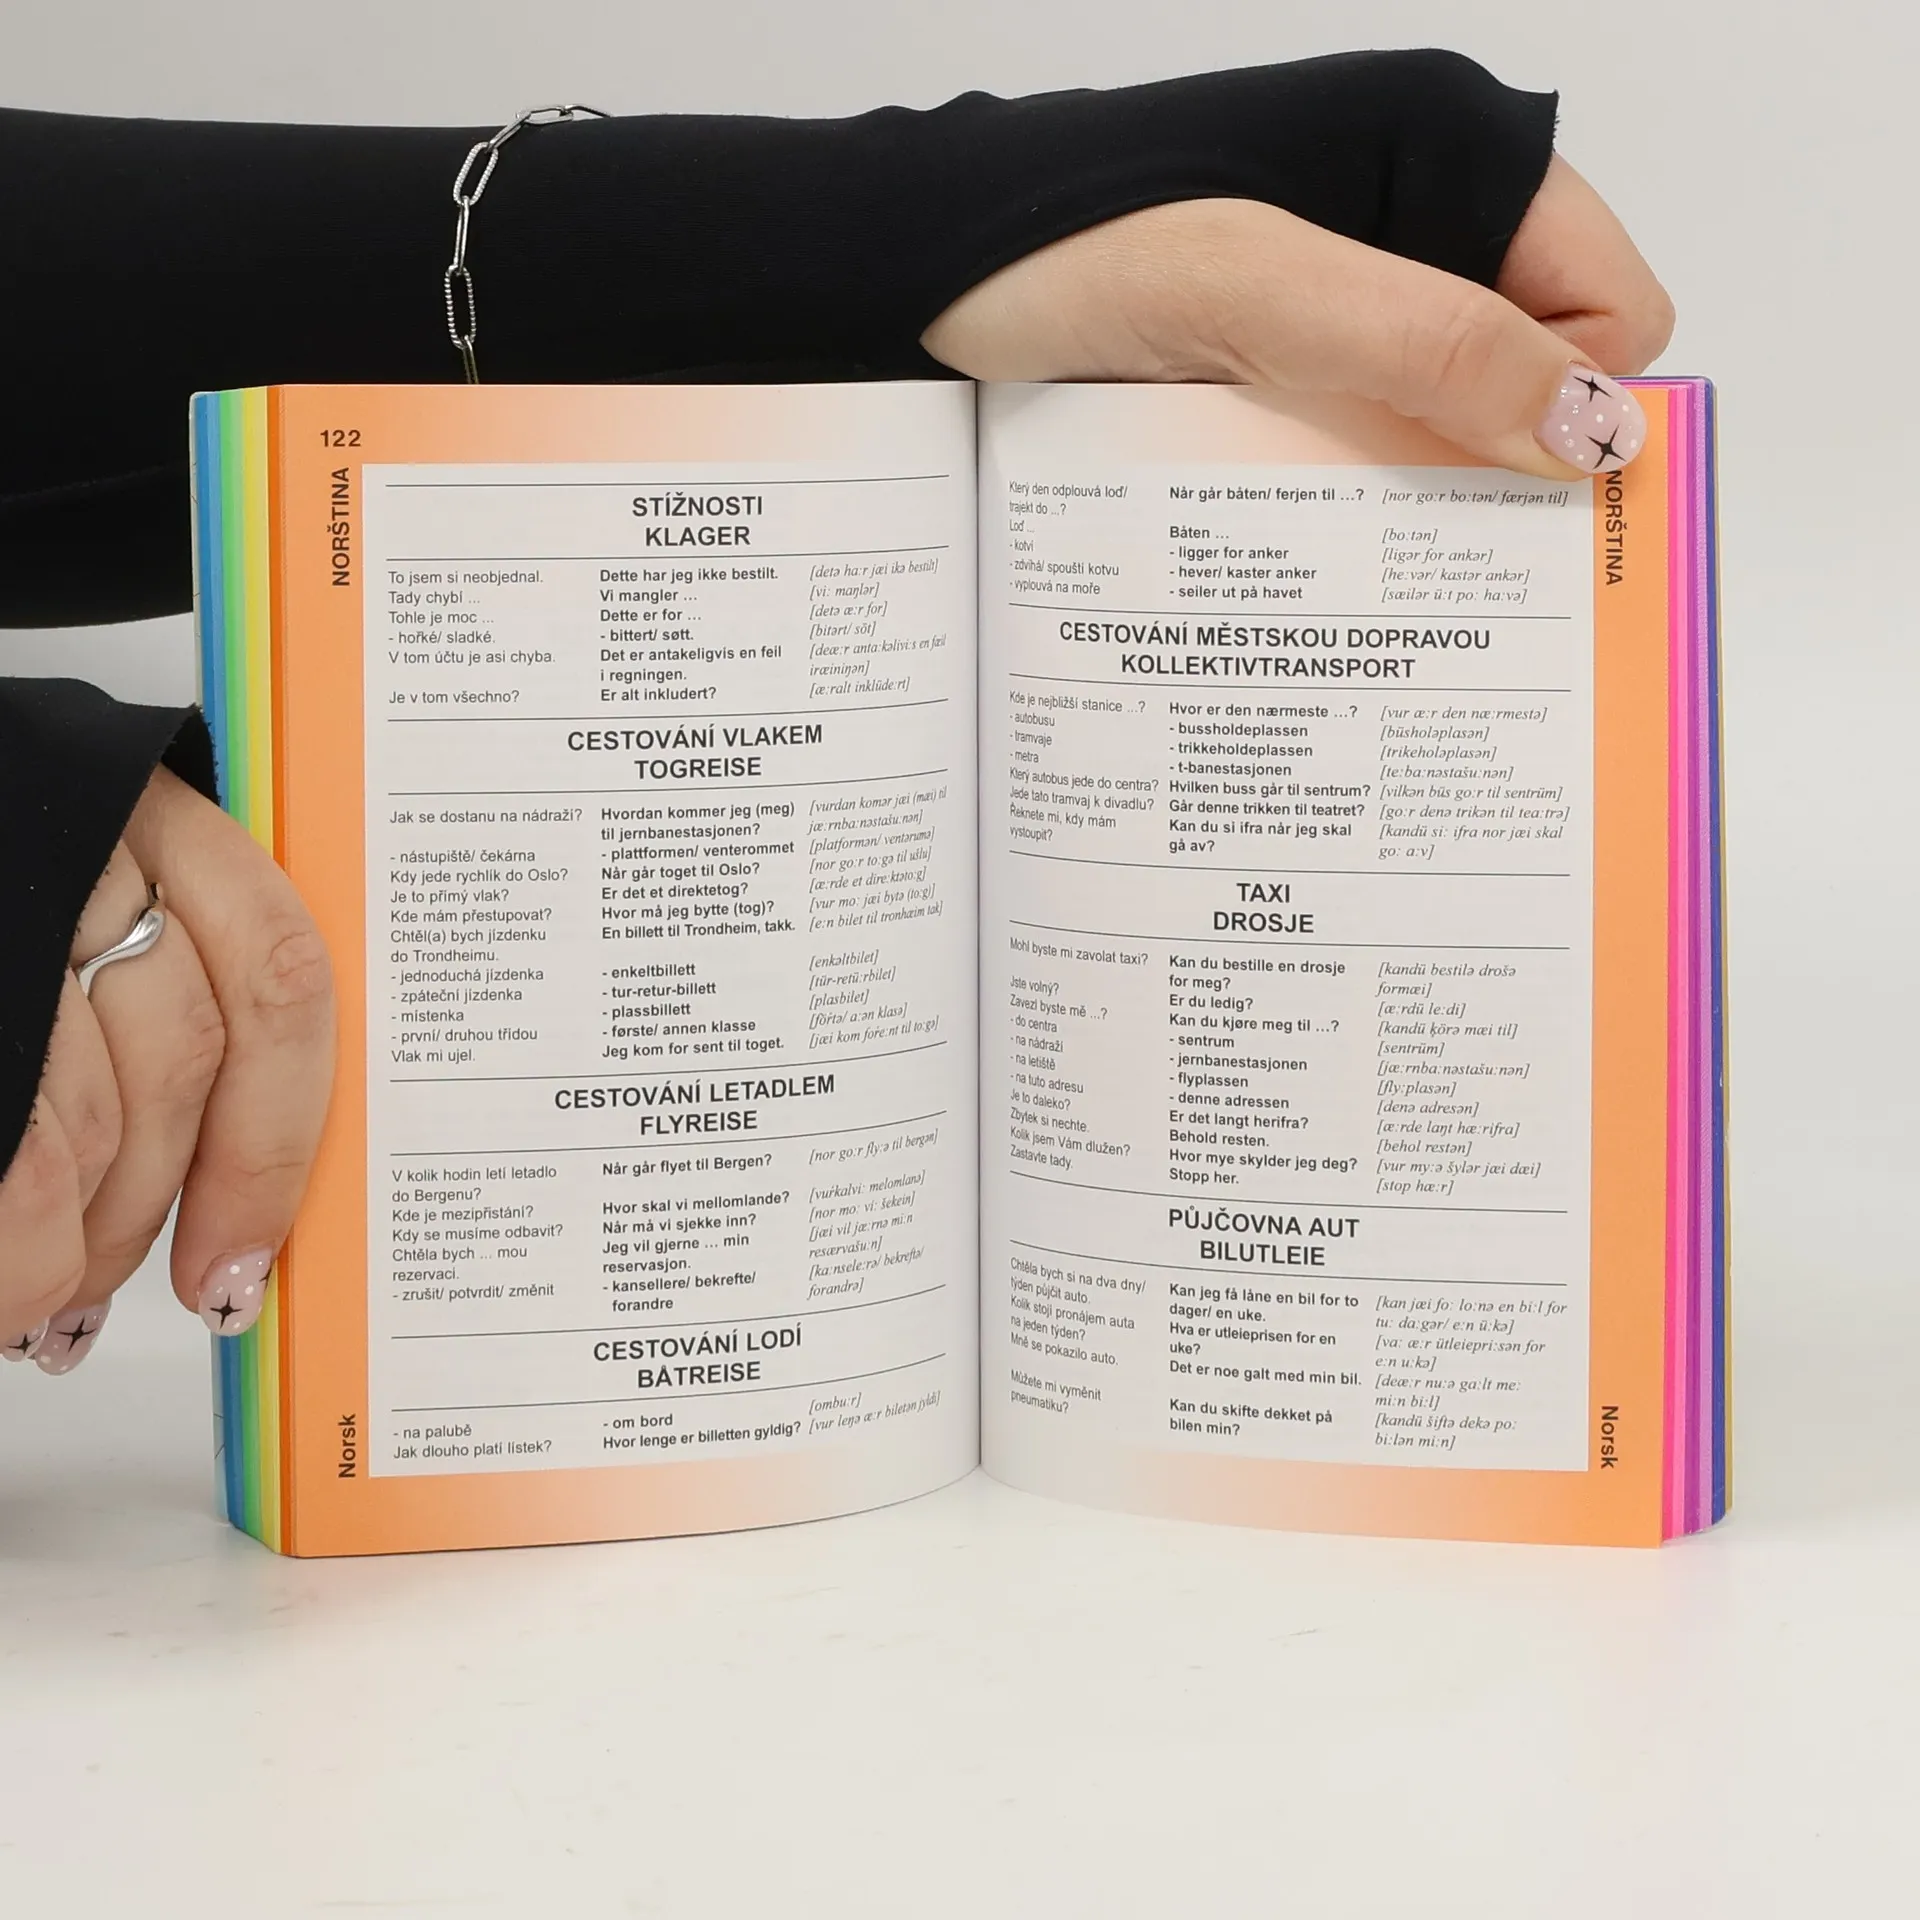 122
NORŠTINA
STÍŽNOSTI
KLAGER
To jsem si neobjednal. Dette har jeg ikke bestilt. [detə ha:r jæi ikə bestilt]
Tady chybí ... Vi mangler ... [vi: maŋlər]
Tohle je moc ... Dette er for ... [detə æ:r for]
- hořké/ sladké. - bittert/ søtt. [bitərt/ söt]
V tom účtu je asi chyba. Det er antakeligvis en feil [deæ:r anta:kəlivi:s en fæil
i regningen. iræiniŋən]
Je v tom všechno? Er alt inkludert? [æ:ralt inklüde:rt]
CESTOVÁNÍ VLAKEM
TOGREISE
Jak se dostanu na nádraží? Hvordan kommer jeg (meg) [vurdan komər jæi (mæi) til
til jernbanestasjonen? jæ:rnba:nəstašu:nən]
- nástupiště/ čekárna - plattformen/ venterommet [platformən/ ventərumə]
Kdy jede rychlík do Oslo? Når går toget til Oslo? [nor go:r to:gə til ušlu]
Je to přímý vlak? Er det et direktetog? [æ:rde et dire:ktəto:g]
Kde mám přestupovat? Hvor må jeg bytte (tog)? [vur mo: jæi bytə (to:g)]
Chtěl(a) bych jízdenku En billett til Trondheim, takk. [e:n bilet til tronhæim tak]
do Trondheimu.
- jednoduchá jízdenka - enkeltbillett [enkəltbilet]
- zpáteční jízdenka - tur-retur-billett [tür-retü:rbilet]
- místenka - plassbillett [plasbilet]
- první/ druhou třídou - første/ annen klasse [föřtə/ a:ən klasə]
Vlak mi ujel. Jeg kom for sent til toget. [jæi kom foře:nt til to:gə]
CESTOVÁNÍ LETADLEM
FLYREISE
V kolik hodin letí letadlo Når går flyet til Bergen? [nor go:r fly:ə til bergən]
do Bergenu?
Kde je mezipřistání? Hvor skal vi mellomlande? [vuřkalvi: melomlanə]
Kdy se musíme odbavit? Når må vi sjekke inn? [nor mo: vi: šekein]
Chtěla bych ... mou Jeg vil gjerne ... min [jæi vil jæ:rnə mi:n
rezervaci. reservasjon. resærvašu:n]
- zrušit/ potvrdit/ změnit - kansellere/ bekrefte/ [ka:nsele:rə/ bekreftə/
forandre forandrə]
CESTOVÁNÍ LODÍ
BÅTREISE
- na palubě - om bord [ombu:r]
Jak dlouho platí lístek? Hvor lenge er billetten gyldig? [vur leŋə æ:r biletən jyldi]
Norsk
Který den odplouvá loď/ Når går båten/ ferjen til ...? [nor go:r bo:tən/ færjən til]
trajekt do ...?
Loď ... Båten ... [bo:tən]
- kotví - ligger for anker [ligər for ankər]
- zdvihá/ spouští kotvu - hever/ kaster anker [he:vər/ kastər ankər]
- vyplouvá na moře - seiler ut på havet [sæilər ü:t po: ha:və]
CESTOVÁNÍ MĚSTSKOU DOPRAVOU
KOLLEKTIVTRANSPORT
Kde je nejbližší stanice ...? Hvor er den nærmeste ...? [vur æ:r den næ:rmestə]
- autobusu - bussholdeplassen [büsholəplasən]
- tramvaje - trikkeholdeplassen [trikeholəplasən]
- metra - t-banestasjonen [te:ba:nəstašu:nən]
Který autobus jede do centra? Hvilken buss går til sentrum? [vilkən büs go:r til sentrüm]
Jede tato tramvaj k divadlu? Går denne trikken til teatret? [go:r denə trikən til tea:trə]
Řeknete mi, kdy mám Kan du si ifra når jeg skal [kandü si: ifra nor jæi skal
vystoupit? gå av? go: a:v]
TAXI
DROSJE
Mohl byste mi zavolat taxi? Kan du bestille en drosje [kandü bestilə drošə
for meg? formæi]
Jste volný? Er du ledig? [æ:rdü le:di]
Zavezl byste mě ...? Kan du kjøre meg til ...? [kandü ķörə mæi til]
- do centra - sentrum [sentrüm]
- na nádraží - jernbanestasjonen [jæ:rnba:nəstašu:nən]
- na letiště - flyplassen [fly:plasən]
- na tuto adresu - denne adressen [denə adresən]
Je to daleko? Er det langt herifra? [æ:rde laŋt hæ:rifra]
Zbytek si nechte. Behold resten. [behol restən]
Kolik jsem Vám dlužen? Hvor mye skylder jeg deg? [vur my:ə šylər jæi dæi]
Zastavte tady. Stopp her. [stop hæ:r]
PŮJČOVNA AUT
BILUTLEIE
Chtěla bych si na dva dny/ Kan jeg få låne en bil for to [kan jæi fo: lo:nə en bi:l for
týden půjčit auto. dager/ en uke. tu: da:gər/ e:n ü:kə]
Kolik stojí pronájem auta Hva er utleieprisen for en [va: æ:r ütleiepri:sən for
na jeden týden? uke? e:n u:kə]
Mně se pokazilo auto. Det er noe galt med min bil. [deæ:r nu:ə ga:lt me:
mi:n bi:l]
Můžete mi vyměnit Kan du skifte dekket på [kandü šiftə dekə po:
pneumatiku? bilen min? bi:lən mi:n]
NORŠTINA
Norsk